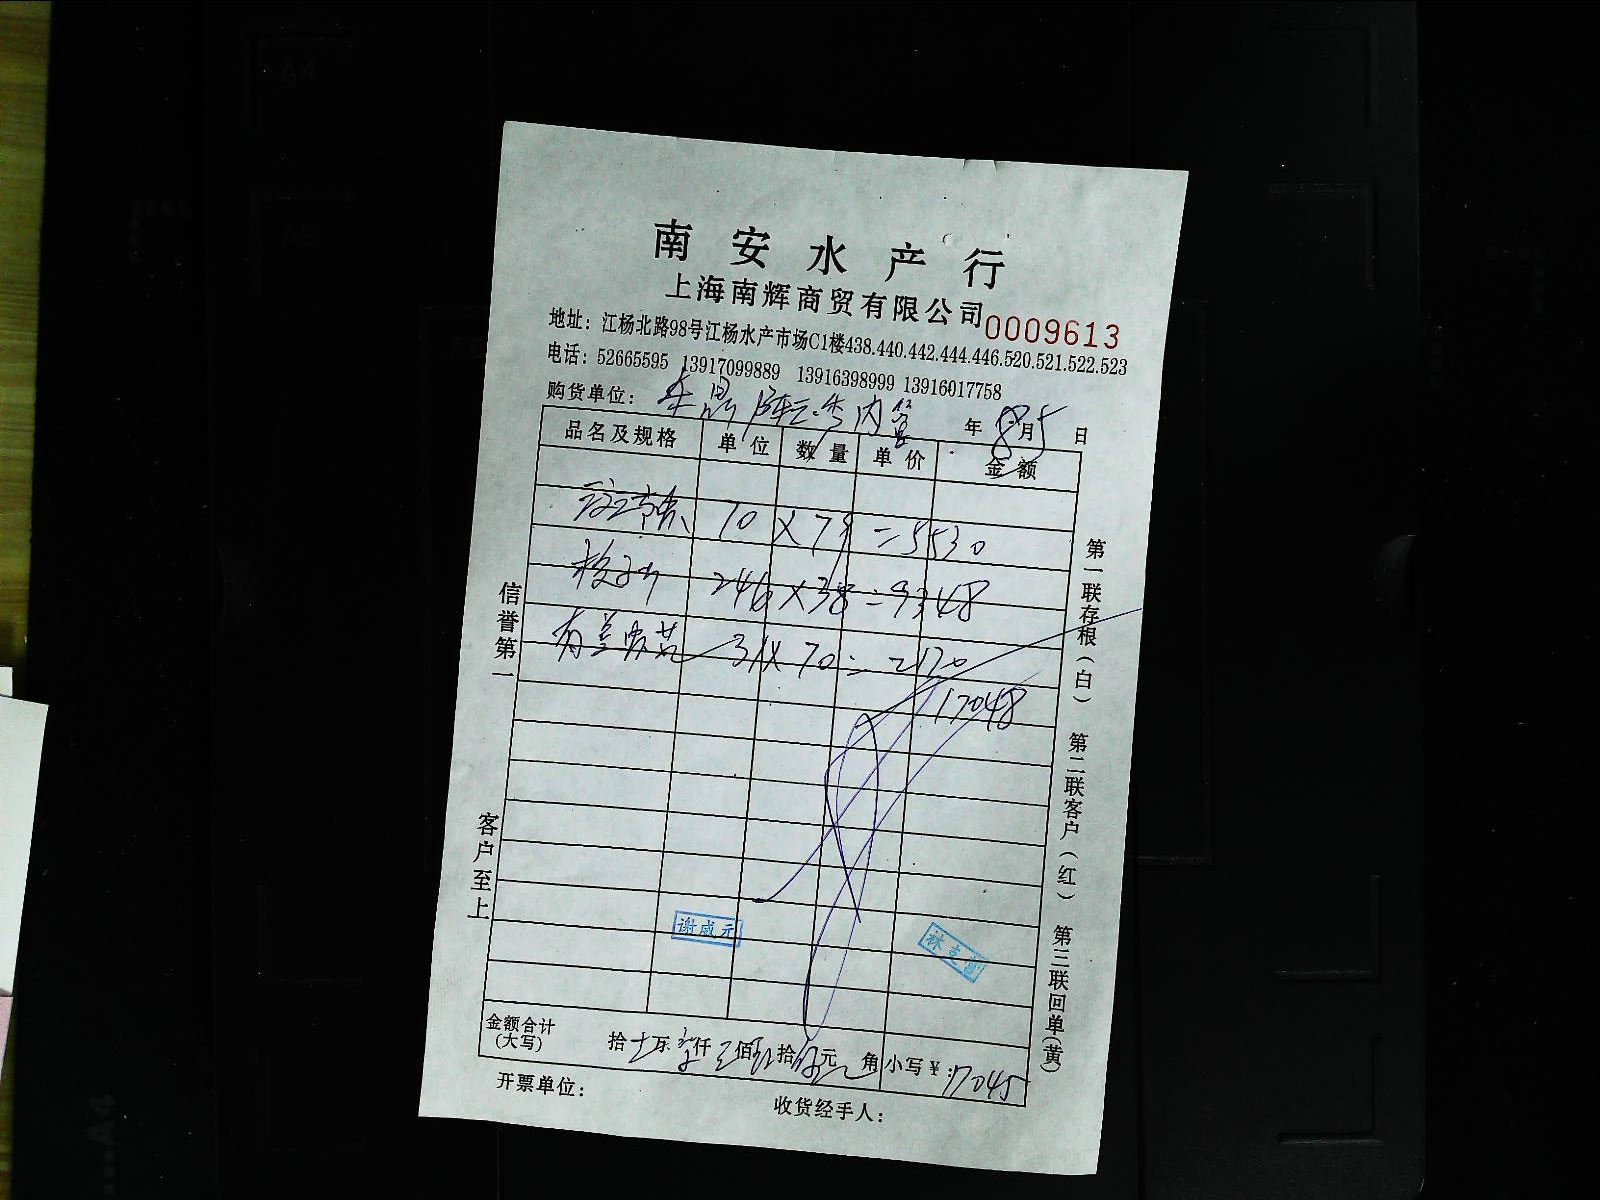 南安水产行
上海南辉商贸有限公司 0009613
地址：江杨北路98号江杨水产市场C1楼438.440.442.444.446.520.521.522.523
电话：52665595 13917099889 13916398999 13916017758
购货单位： 年 8 月 5 日
品名及规格 单位 数量 单价 金额
70 X 79 = 5530
246 X 38 = 9348
31 X 70 = 2170
17048
信誉第一
客户至上
第一联存根（白） 第二联客户（红） 第三联回单（黄）
谢咸元
金额合计（大写） 拾 万 仟 佰 拾 元 角 小写￥： 17045
开票单位： 收货经手人：